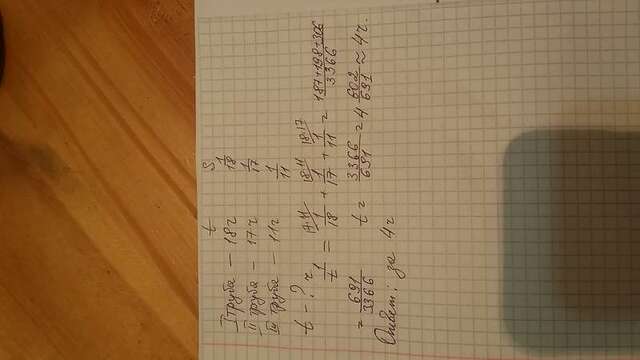 t S
I труба – 18 ч 1/18
II труба – 17 ч 1/17
III труба – 11 ч 1/11
t – ? ч
1/t = 1/18 (17·11) + 1/17 (18·11) + 1/11 (18·17) = (187+198+306)/3366
= 691/3366 t = 3366/691 = 4 602/691 ≈ 4 ч.
Ответ: за 4 ч